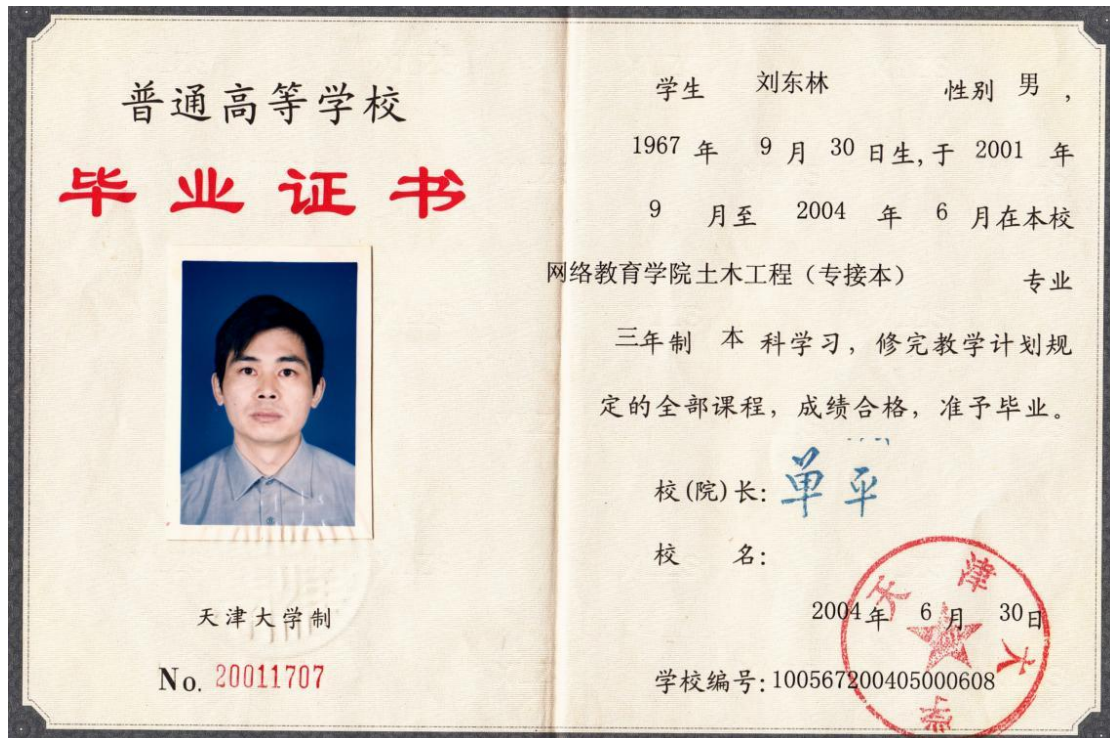 普通高等学校
毕业证书
天津大学制
No. 20011707
学生 刘东林 性别 男 ,
1967 年 9 月 30 日生,于 2001 年
9 月至 2004 年 6 月在本校
网络教育学院土木工程（专接本） 专业
三年制 本 科学习，修完教学计划规
定的全部课程，成绩合格，准予毕业。
校(院)长: 单平
校 名:
天津大学
2004年 6月 30日
学校编号:100567200405000608